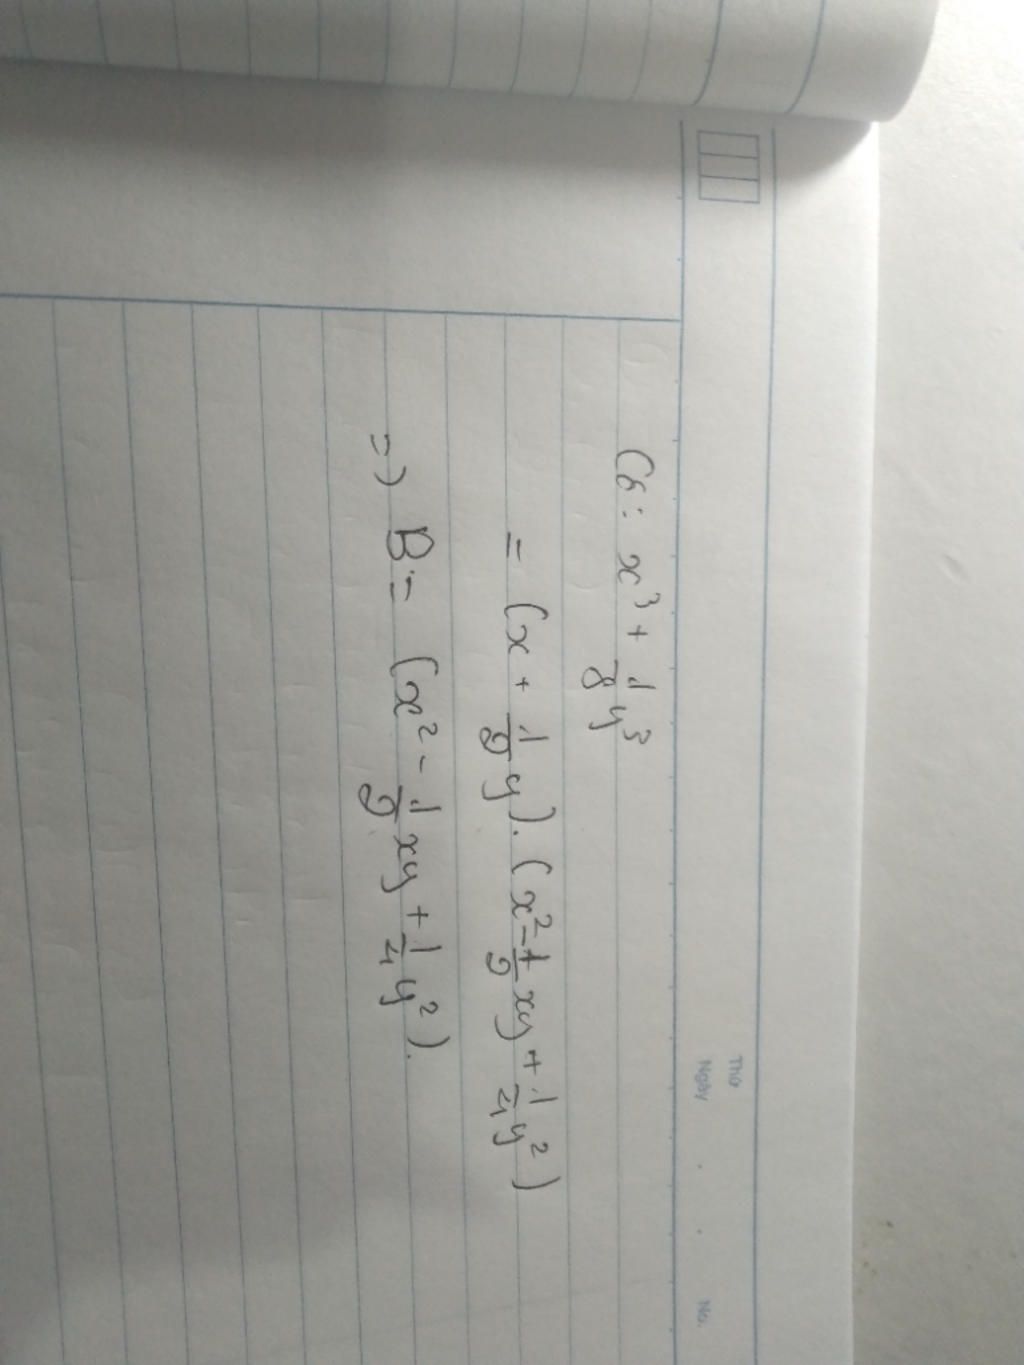 Thứ
Ngày . . No.
Có: x³ + 1/8 y³
= (x + 1/2 y).(x² - 1/2 xy + 1/4 y²)
=) B = (x² - 1/2 xy + 1/4 y²).